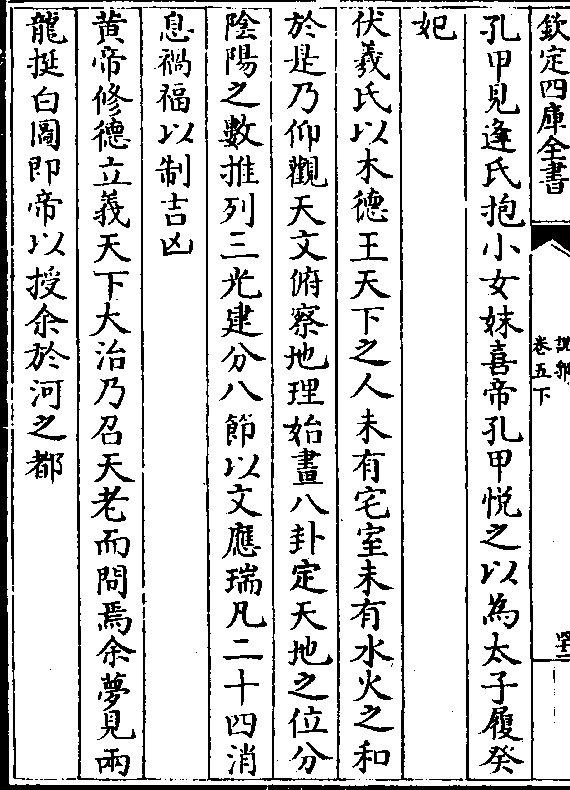 欽定四庫全書
說郛
卷五下
孔甲見逢氏抱小女妺喜帝孔甲悅之以為太子履癸
妃
伏羲氏以木德王天下之人未有宅室未有水火之和
於是乃仰觀天文俯察地理始畫八卦定天地之位分
陰陽之數推列三光建分八節以文應瑞凡二十四消
息禍福以制吉凶
黃帝修德立義天下大治乃召天老而問焉余夢見兩
龍挺白圖即帝以授余於河之都